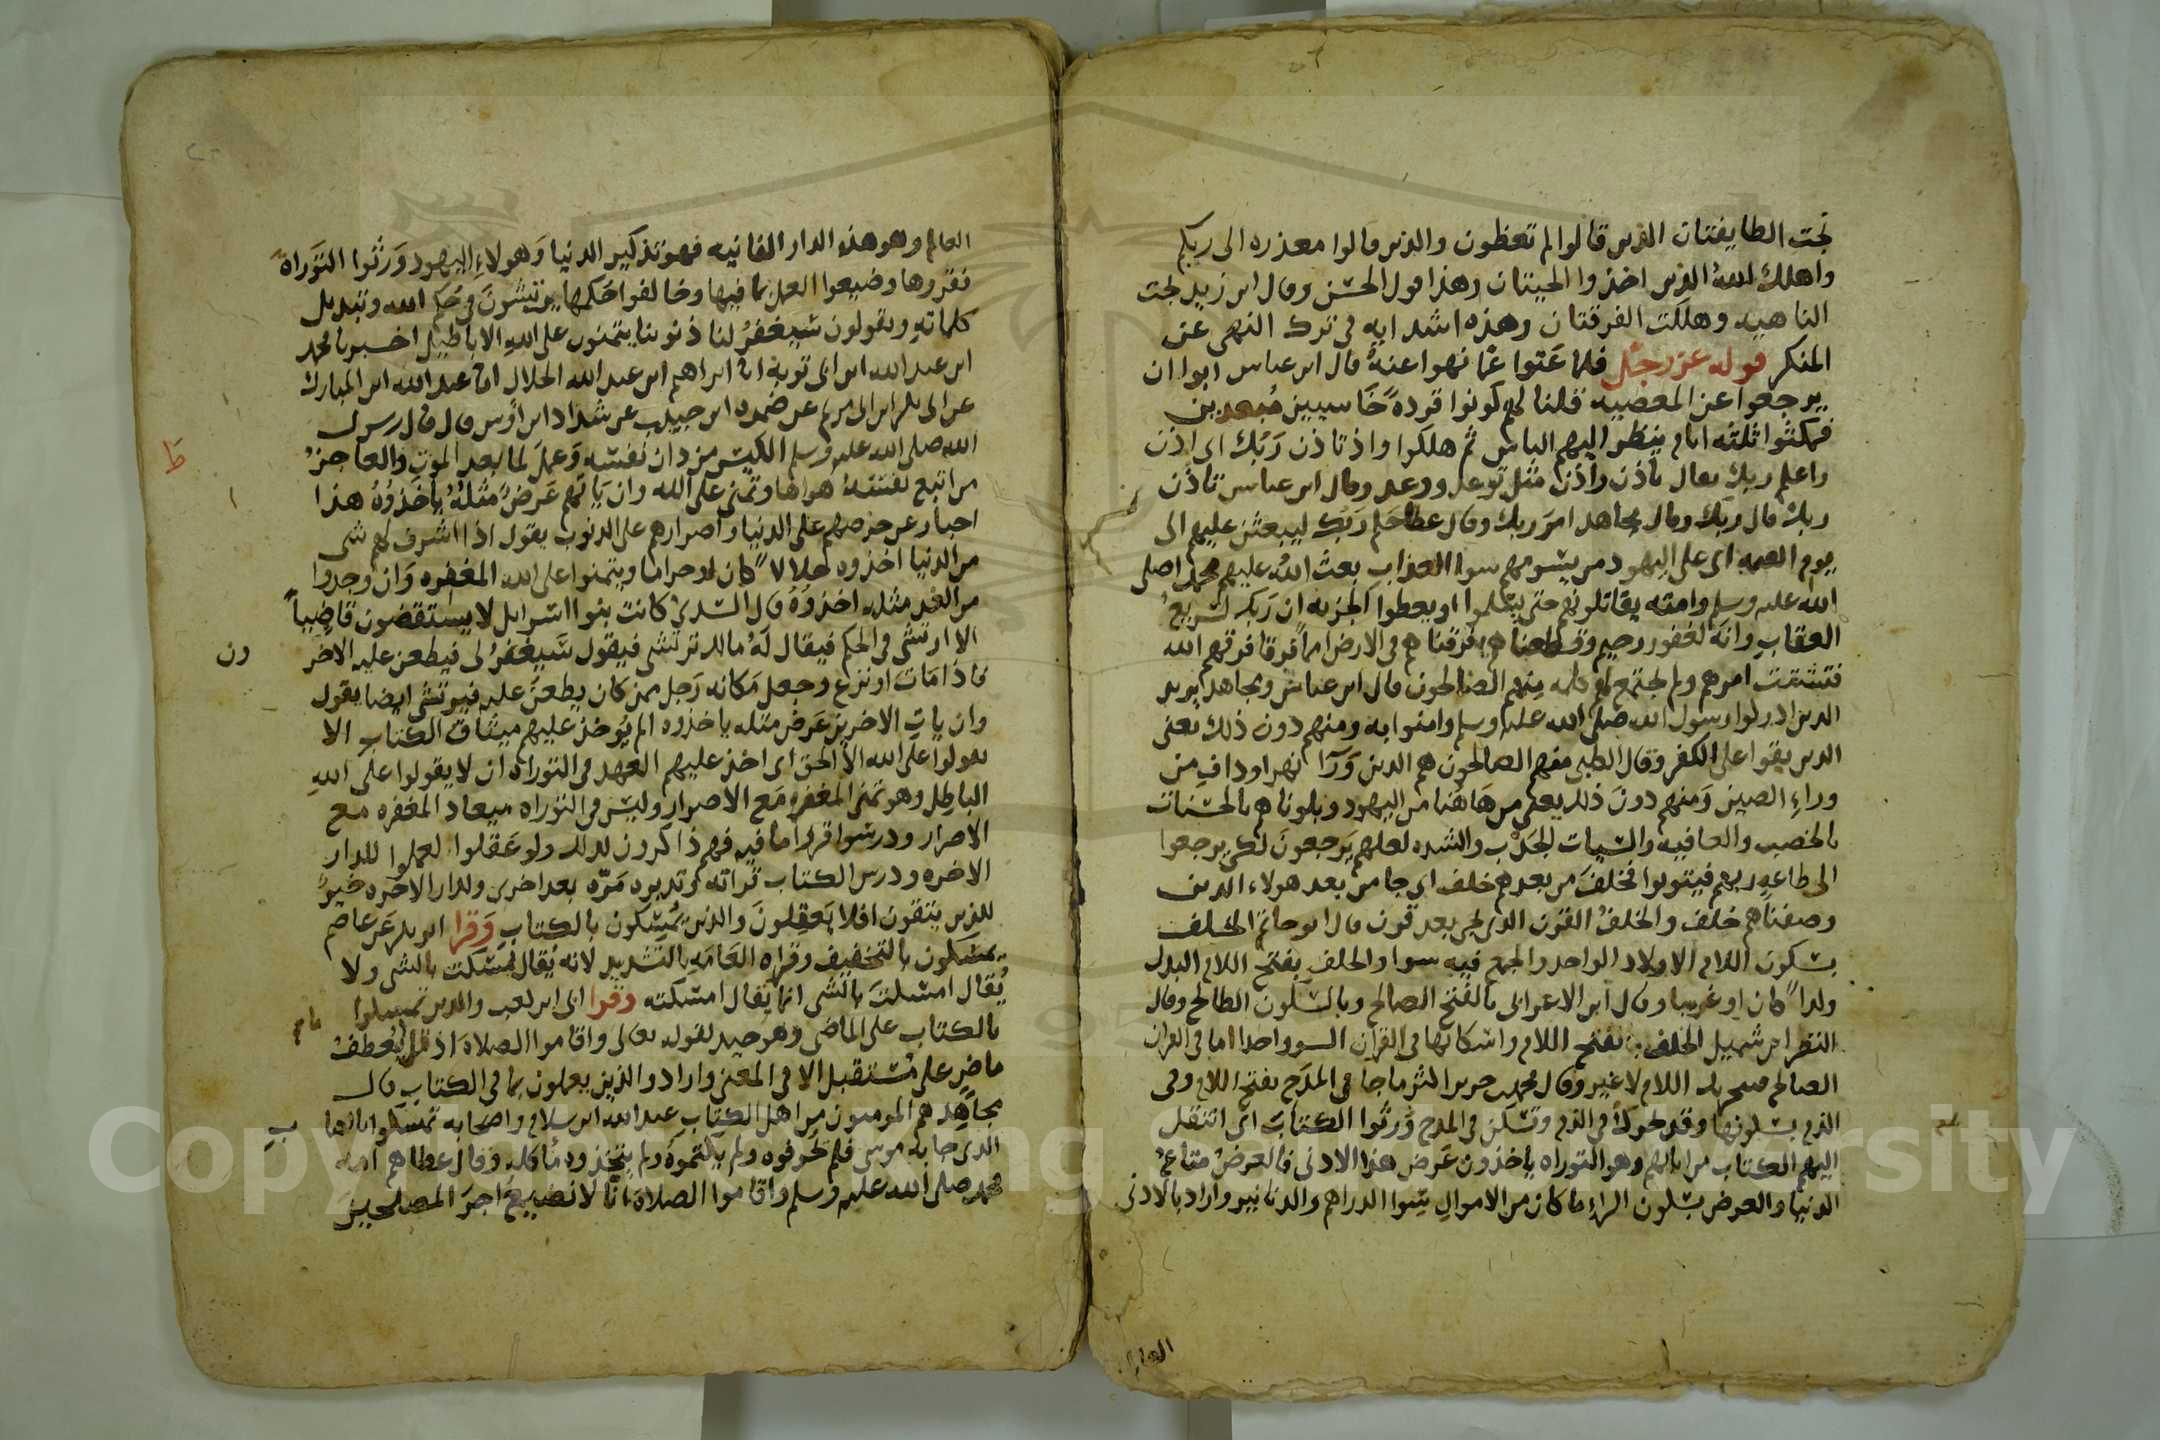 نجت الطايفتان الذين قالوا لم تعظون والذين قالوا معذره الى ربكم
واهلك الله الذين اخذوا الحيتان وهذا قول الحسن وقال ابن زيد نجت
الناهيه وهلكت الفرقتان وهذه اشد ايه في ترك النهى عن
المنكر قوله عز وجل فلما عتوا عما نهوا عنه قال ابن عباس ابوا ان
يرجعوا عن المعصيه قلنا لهم كونوا قردة خاسيين مبعدين
فمكثوا ثلثه ايام ينظر اليهم الناس ثم هلكوا واذ تاذن ربك اى اذن
واعلم ربك يقال تاذن واذن مثل توعد ووعد وقال ابن عباس تاذن
ربك قال ربك وقال مجاهد امر ربك وقال عطا حكم ربك ليبعثن عليهم الى
يوم القيمه اى على اليهود من يسومهم سوا العذاب بعث الله عليهم محمدا صلى
الله عليه وسلم وامته يقاتلونهم حتى يسلموا او يعطوا الجزيه ان ربك لسريع
العقاب وانه لغفور رحيم وقطعناهم فرقناهم فى الارض امما فرقا فرقهم الله
فتشتت امرهم ولم تجتمع لهم كلمه منهم الصالحون قال ابن عباس ومجاهد يريد
الذين ادركوا رسول الله صلى الله عليه وسلم وامنوا به ومنهم دون ذلك يعنى
الذين بقوا على الكفر وقال الكلبى منهم الصالحون هم الذين ورآ نهر اوداف من
وراء الصين ومنهم دون ذلك يعنى من هاهنا من اليهود وبلوناهم بالحسنات
بالخصب والعافيه والسيات الجدب والشده لعلهم يرجعون لكى يرجعوا
الى طاعة ربهم فيتوبوا فخلف من بعدهم خلف اى جا من بعد هولاء الذين
وصفناهم خلف والخلف القرن الذى يجى بعد قرن قال ابو حاتم الخلف
بسكون اللام الاولاد الواحد والجمع فيه سوا والخلف بفتح اللام البدل
ولدا كان او غريبا وقال ابن الاعرابى بالفتح الصالح وبالسكون الطالح وقال
النضر ابن شميل الخلف بفتح اللام واسكانها فى القرن السو واحد اما فى القرن
الصالح فبتحريك اللام لا غير وقال محمد بن جرير اكثر ما جا فى المدح بفتح اللام وفى
الذم بسكونها وقد تحرك فى الذم وتسكن فى المدح ورثوا الكتاب اى انتقل
اليهم الكتاب من ابائهم وهو التوراه ياخذون عرض هذا الادنى فالعرض متاع
الدنيا والعرض بسكون الراء ما كان من الاموال سوا الدراهم والدنانير واراد بالادنى
العالم
العالم وهو هذه الدار الفانيه فهو تذكير الدنيا وهولاء اليهود ورثوا التوراة
فقروها وضيعوا العمل بما فيها وخالفوا حكمها يرتشون فى حكم الله وتبديل
كلماته ويقولون سيغفر لنا ذنوبنا يتمنون على الله الاباطيل اخبرنا محمد
ابن عبد الله ابن ابى توبه انا ابراهيم ابن عبد الله الخلال انا عبد الله ابن المبارك
عن ابى بكر ابن ابى مريم عن ضمره ابن حبيب عن شداد ابن اوس قال قال رسول
الله صلى الله عليه وسلم الكيس من دان نفسه وعمل لما بعد الموت والعاجز
من اتبع نفسه هواها وتمنى على الله وان ياتهم عرض مثله ياخذوه هذا
اخبار عن حرصهم على الدنيا واصرارهم على الذنوب يقول اذا اشرف لهم شى
من الدنيا اخذوه حلالا كان او حراما ويتمنوا على الله المغفره وان وجدوا
من الغد مثله اخذوه قال السدى كانت بنوا اسرايل لا يستقضون قاضيا
الا ارتشى فى الحكم فيقال له ما لك ترتشى فيقول سيغفر لى فيطعن عليه الاخر
فاذا مات او نزع وجعل مكانه رجل ممن كان يطعن عليه فيرتشى ايضا يقول
وان يات الاخرين عرض مثله ياخذوه الم يوخذ عليهم ميثاق الكتاب الا
يقولوا على الله الا الحق اى اخذ عليهم العهد فى التوراه ان لا يقولوا على الله
الباطل وهو تمنى المغفره مع الاصرار وليس فى التوراه ميعاد المغفره مع
الاصرار ودرسوا قروا ما فيه فهم ذاكرون لذلك ولو عقلوا لعملوا للدار
الاخره ودرس الكتاب قراته وتدبره مره بعد اخرى ولدار الاخره خير
للذين يتقون افلا يعقلون والذين يمسكون بالكتاب وقرا ابو بكر عن عاصم
يمسكون بالتخفيف وقراه العامه بالتشديد لانه يقال تمسكت بالشى ولا
يقال امسكت بالشى انما يقال امسكته وقرا ابى ابن كعب والذين تمسكوا
بالكتاب على الماضى وهو جيد لقوله تعالى واقاموا الصلاة اذ قل يعطف
ماض على مستقبل الا فى المعنى واراد والذين يعملون بما فى الكتاب قال
مجاهد هم المومنون من اهل الكتاب عبد الله ابن سلام واصحابه تمسكوا
الذى جا به موسى فلم يحرفوه ولم يكتموه ولم يتخذوه ماكله وقال عطا هم امه
محمد صلى الله عليه وسلم واقاموا الصلاة انا لا نضيع اجر المصلحين